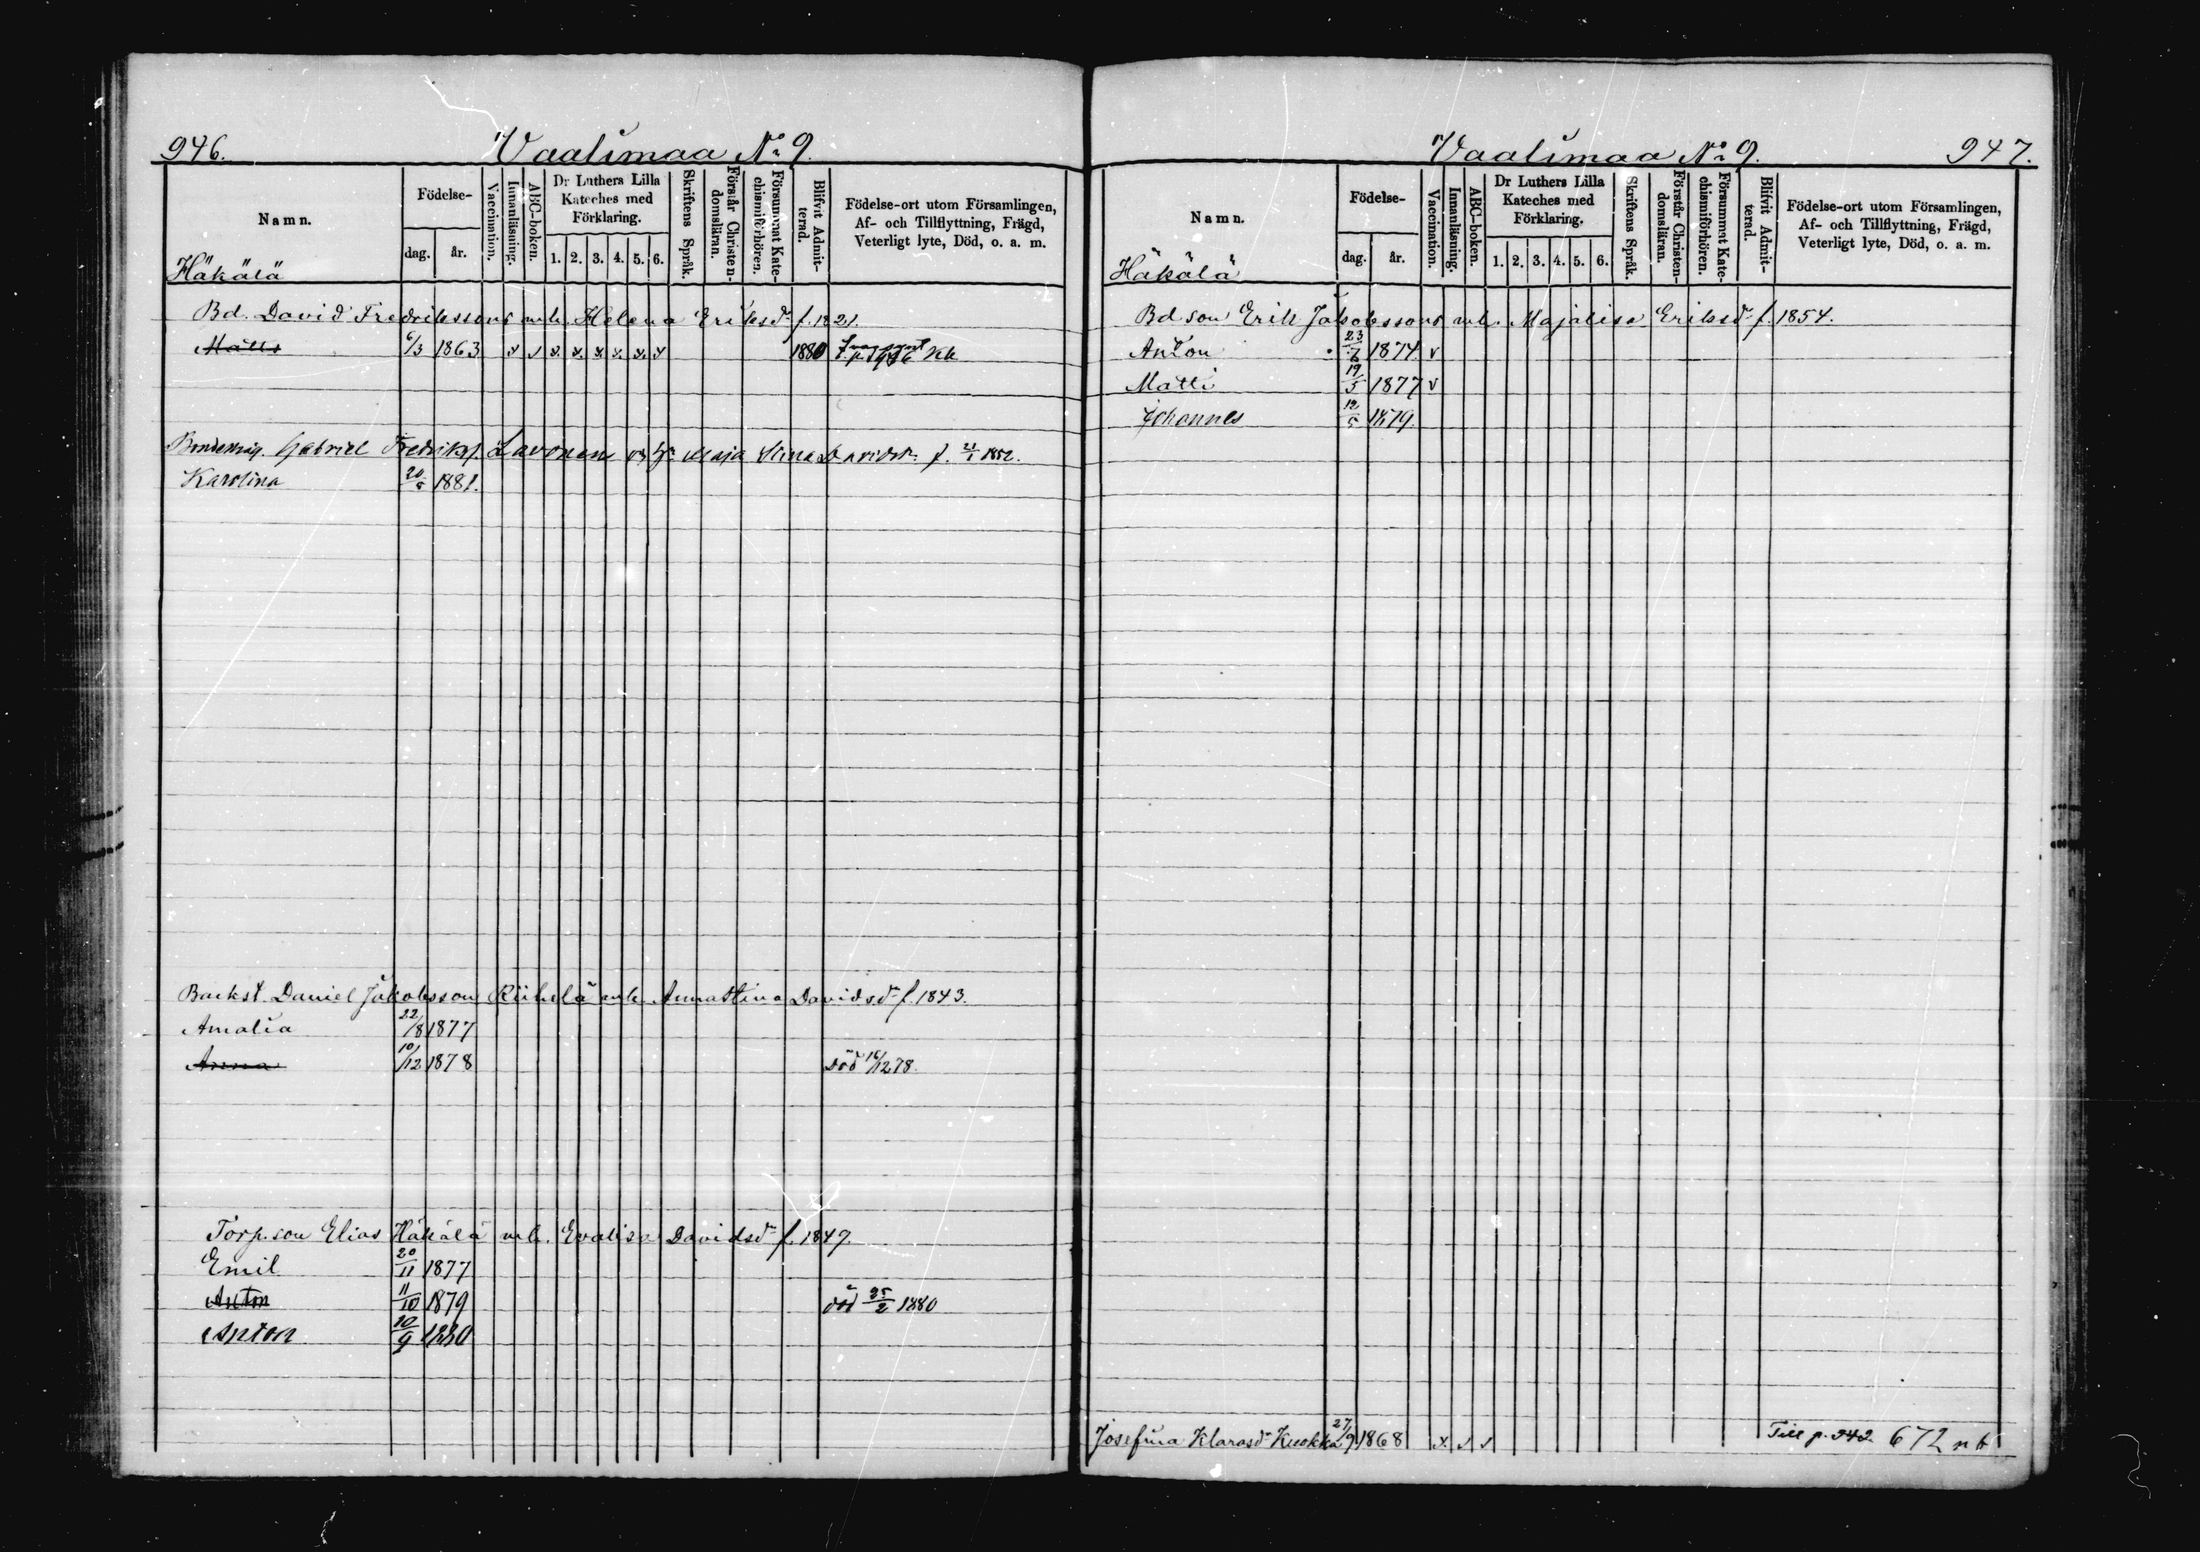 946. Vaalimaa No 9.
Namn. Födelse- dag. år. Vaccination. Innanläsning. ABC-boken. Dr Luthers Lilla Kateches med Förklaring. 1. 2. 3. 4. 5. 6. Skriftens Språk. Förstår Christendomsläran. Försummat Katechismiförhören. Blifvit Admitterad. Födelse-ort utom Församlingen, Af- och Tillflyttning, Frägd, Veterligt lyte, Död, o. a. m.
Häkälä
Bd. David Fredrikssons enk. Helena Eriksd. f. 1821.
Matts 6/3 1863 1880
Gabriel Fredriksf. Lavonen Maja Stina Davidsdr. f. 1852.
Karolina 20/5 1881.
Backst. Daniel Jakobsson Riihelä enk. Annastina Davidsd. f. 1843.
Amalia 22/8 1877
Anna 10/12 1878 Död 16/12 78.
Torp. son Elias Häkälä enk. Evalisa Davidsd. f. 1849.
Emil 20/11 1877
Anton 11/10 1879 död 25/2 1880
Anton 10/9 1880
Vaalimaa No 9. 947.
Namn. Födelse- dag. år. Vaccination. Innanläsning. ABC-boken. Dr Luthers Lilla Kateches med Förklaring. 1. 2. 3. 4. 5. 6. Skriftens Språk. Förstår Christendomsläran. Försummat Katechismiförhören. Blifvit Admitterad. Födelse-ort utom Församlingen, Af- och Tillflyttning, Frägd, Veterligt lyte, Död, o. a. m.
Häkälä
Bd son Erik Jakobssons enk. Majalisa Eriksd. f. 1854.
Anton 23/7 1874 v
Matti 19/5 1877 v
Johannes 12/5 1879.
Josefina Klarasd. Kuokka 27/9 1868 x v v Till p. 942 672 nb